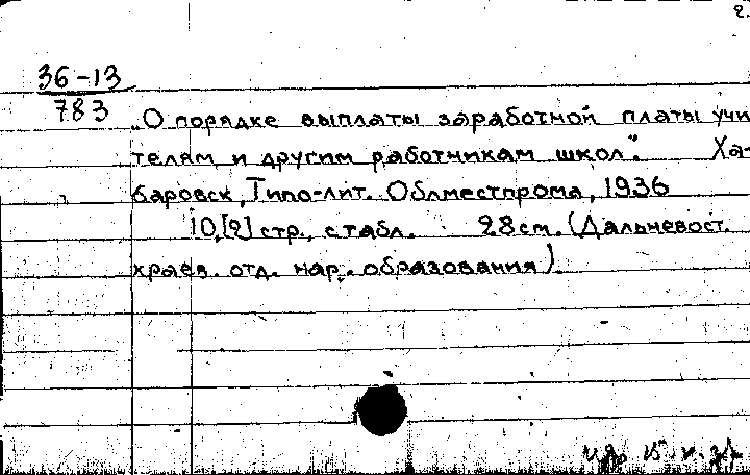 2.
36-13
783
„О порядке выплаты заработной платы учи
телям и другим работникам школ". Ха-
баровск, Типо-лит. Облместпрома, 1936
10,[2] стр., с табл. 28 см. (Дальневост.
краев. отд. нар. образования).